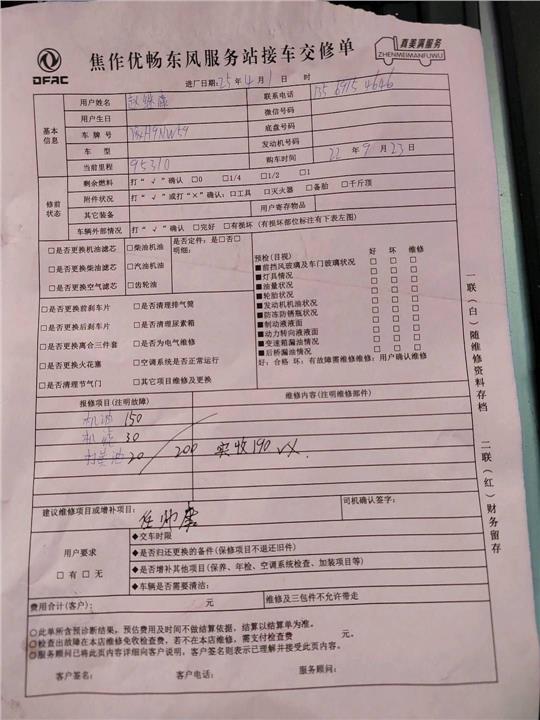 DFAC
焦作优畅东风服务站接车交修单
真美满服务
ZHENMEIMANFUWU
进厂日期:25年4月1日 时
基本信息
用户姓名 联系电话 135 6915 4646
用户生日 微信号码
车牌号 底盘号码
车型 发动机号码
当前里程 95310 购车时间 22年9月23日
修前状态
剩余燃料 打“√”确认 □0 □1/4 □1/2 □1
附件状况 打“√”或打“×”确认:□工具 □灭火器 □备胎 □千斤顶
其它装备 用户寄存物品
车辆外部情况 打“√”确认 □完好 □有损坏(有损坏部位标注有下表左图)
□是否更换机油滤芯 □柴油机油 是否定件:是□否□
□是否更换柴油滤芯 □汽油机油 明细:
□是否更换空气滤芯 □齿轮油
□是否更换前刹车片 □是否清理排气筒
□是否更换后刹车片 □是否清理尿素箱
□是否更换离合三件套 □是否为电气维修
□是否更换火花塞 □空调系统是否正常运行
□是否清理节气门 □其它项目维修及更换
预检(目视) 好 坏 维修
■前挡风玻璃及车门玻璃状况 □ □ □
■灯具情况 □ □ □
■油量状况 □ □ □
■轮胎状况 □ □ □
■发动机机油状况 □ □ □
■防冻防锈瓶状况 □ □ □
■制动液液面 □ □ □
■动力转向液液面 □ □ □
■变速箱漏油情况 □ □ □
■后桥漏油情况 □ □ □
好:合格 坏:有故障需维修维修:用户确认维修
报修项目(注明故障) 维修内容(注明维修部件)
机油 150
30
20 200 实收190
建议维修项目或增补项目: 司机确认签字:
用户要求
□有 □无
◆交车时限
◆是否归还更换的备件(保修项目不退还旧件)
◆是否增补其他项目(保养、年检、空调系统检查、加装项目等)
◆车辆是否需要清洁:
费用合计(客户): 元 维修及三包件不允许带走
○此单所含预诊断结果,预估费用及时间不做结算依据,结算以结算单为准。
○检查出故障在本店维修免收检查费,若不在本店维修,需支付检查费 元。
○服务顾问已将此页内容详细向客户说明,客户签名则表示已理解并接受此页内容。
客户签名: 客户电话: 服务顾问:
一联(白)随维修资料存档 二联(红)财务留存